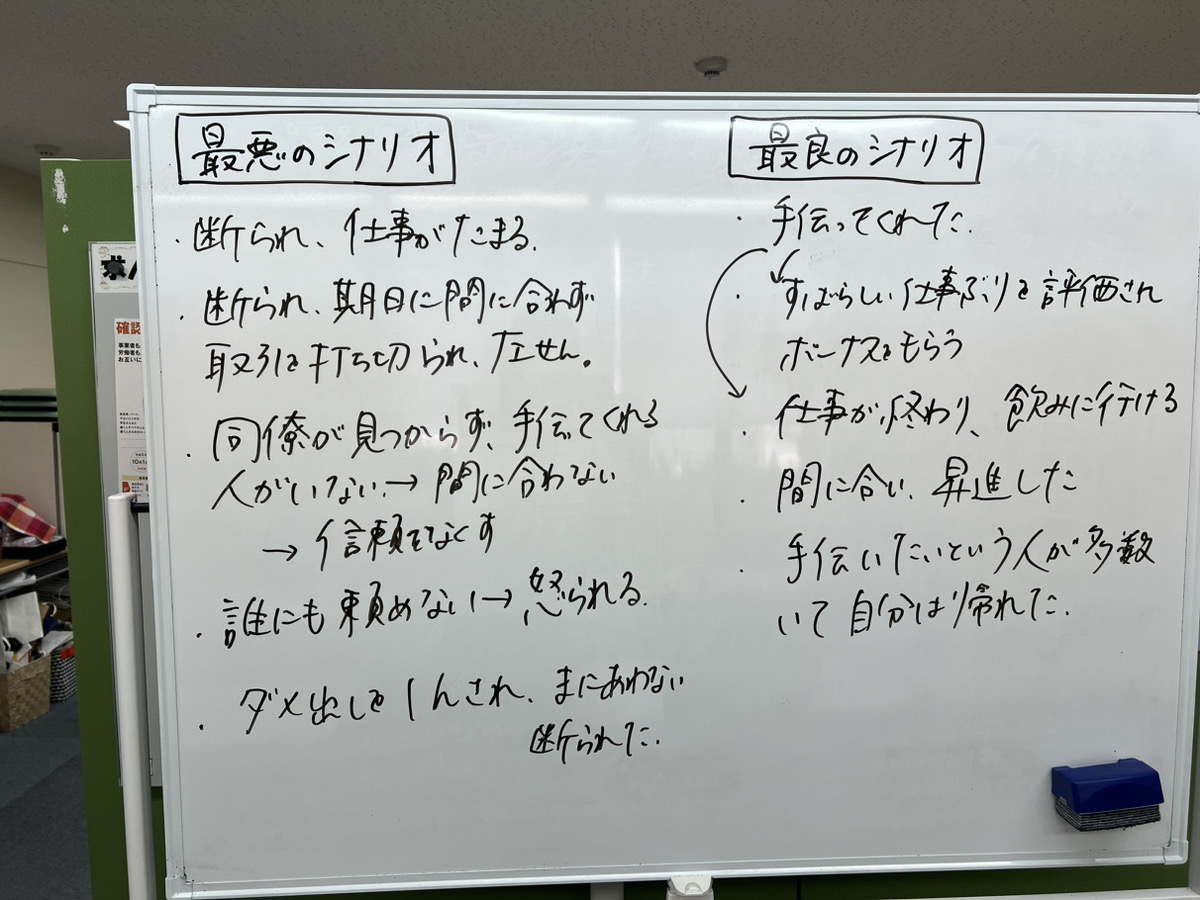 最悪のシナリオ
・断られ、仕事がたまる。
・断られ、期日に間に合わず
取引を打ち切られ、左せん。
・同僚が見つからず、手伝ってくれる
人がいない。→ 間に合わない
→ 信頼をなくす
・誰にも頼めない → 怒られる。
・ダメ出しを され、まにあわない
断られた。
最良のシナリオ
・手伝ってくれた。
・すばらしい仕事ぶりを評価され
ボーナスをもらう
・仕事が終わり、飲みに行ける
・間に合い、昇進した
・手伝いたいという人が多数
いて自分は帰れた。
求
確認
事業者も
労働者も
お互いに